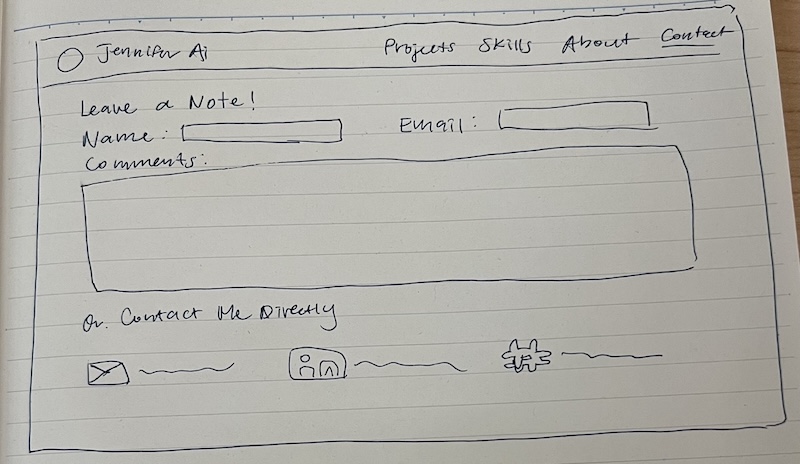 Jennifer Ai Projects Skills About Contact
Leave a Note!
Name: Email:
Comments:
Or. Contact Me Directly